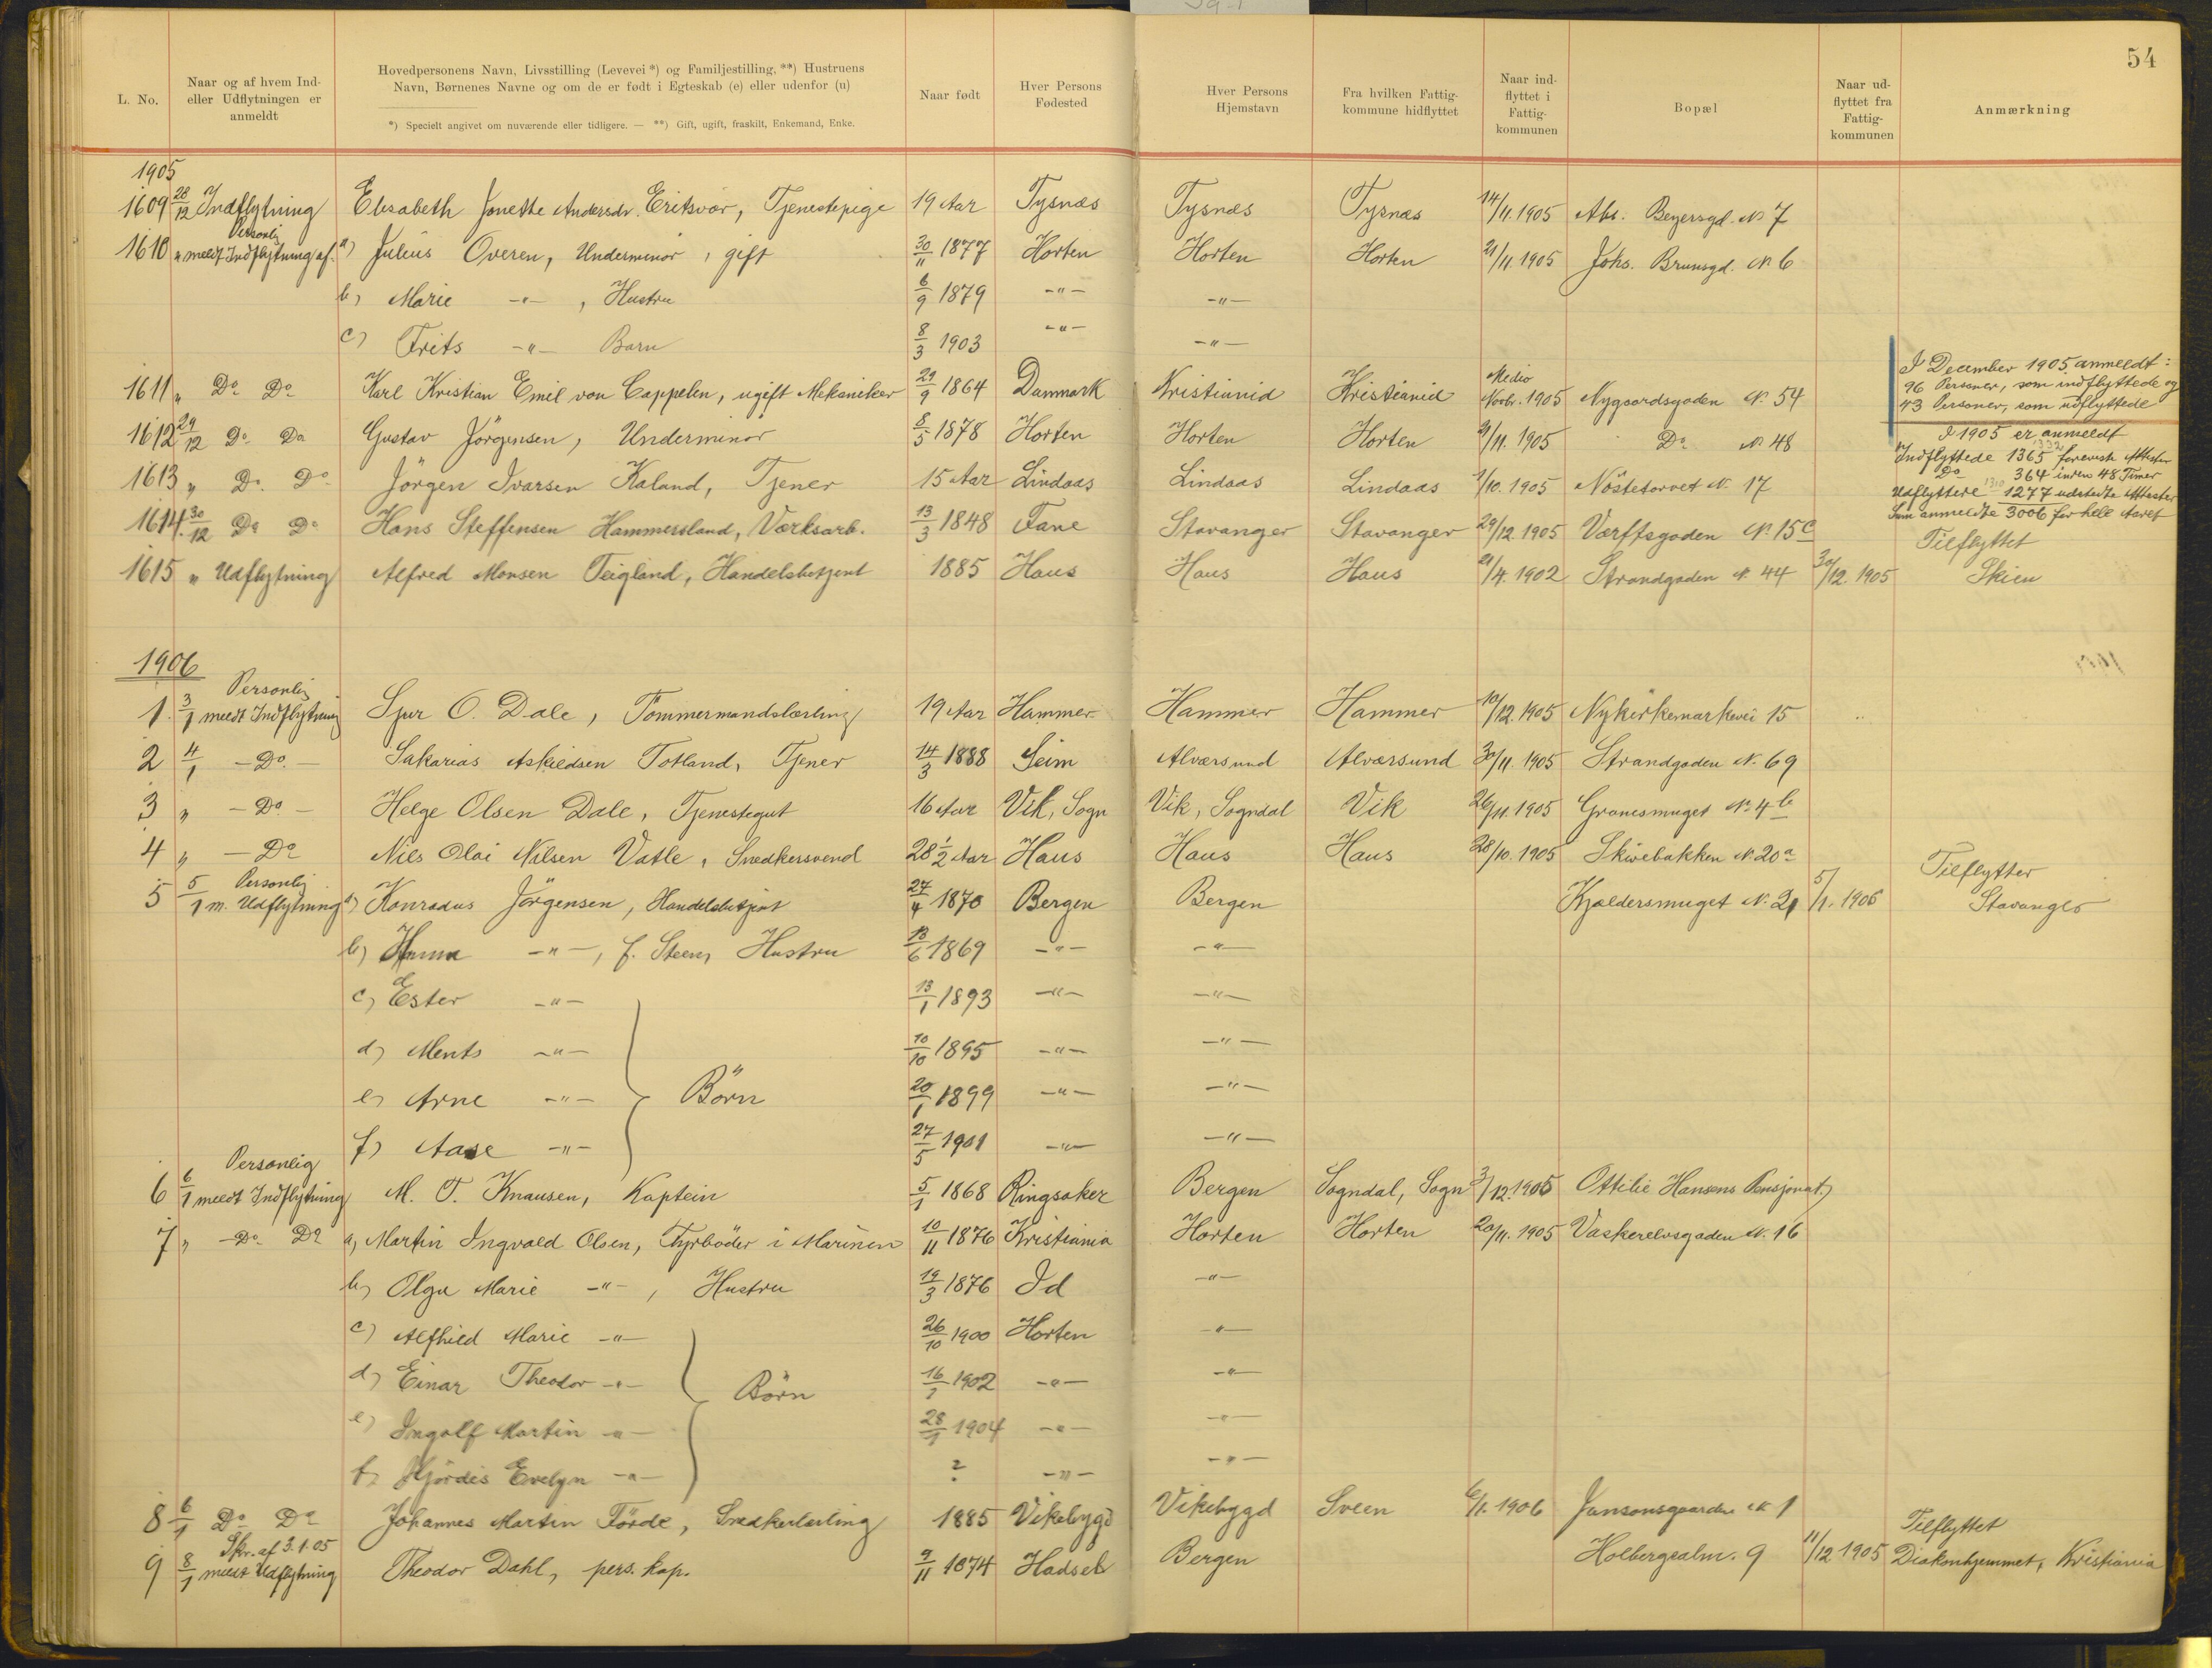 54
L. No.
Naar og af hvem Ind-
eller Udflytningen er
anmeldt
Hovedpersonens Navn, Livsstilling (Levevei *) og Familjestilling, **) Hustruens
Navn, Børnenes Navne og om de er født i Egteskab (e) eller udenfor (u)
*) Specielt angivet om nuværende eller tidligere. — **) Gift, ugift, fraskilt, Enkemand, Enke.
Naar født
Hver Persons
Fødested
Hver Persons
Hjemstavn
Fra hvilken Fattig-
kommune hidflyttet
Naar ind-
flyttet i
Fattig-
kommunen
Bopæl
Naar ud-
flyttet fra
Fattig-
kommunen
Anmærkning
1905
1609 28/12 Indflytning Elisabeth Jonette Andersdr. Eritsvær, Tjenestepige 19 Aar Tysnæs Tysnæs Tysnæs 14/11.1905 Abs. Beyersgd. No 7
Personlig
1610 " meldt Indflytning af. a) Julius Overen, Underminör, gift 30/11 1877 Horten Horten Horten 21/11.1905 Johs. Brunsgd. N. 6
b) Marie -"-, Hustru 6/9 1879 -"- -"-
c) Frits -"- Barn 8/3 1903 -"- -"-
1611 " Do Do Karl Kristian Emil von Cappelen, ugift Mekaniker 29/9 1864 Danmark Kristiania Kristiania Medio Novbr. 1905 Nygaardsgaden N. 54
I December 1905 anmeldt:
96 Personer, som indflyttede og
43 Personer, som udflyttede
1612 29/12 Do Do Gustav Jörgensen, Underminör 8/5 1878 Horten Horten Horten 9/11.1905 Do N. 48
I 1905 er anmeldt
Indflyttede 1365 forevist Attester
Do 364 inden 48 Timer
Udflyttere 1277 udstedte Attester
Sum anmeldte 3006 for hele Aaret
1613 " Do. Do Jörgen Ivarsen Kaland, Tjener 15 Aar Lindaas Lindaas Lindaas 1/10.1905 Nöstetorvet N. 17
1614. 30/12 Do Do Hans Steffensen Hammersland, Værksarb. 13/3 1848 Fane Stavanger Stavanger 29/12 1905 Værftsgaden N. 15c
1615 " Udflytning Alfred Monsen Teigland, Handelsbetjent 1885 Haus Haus Haus 21/4.1902 Strandgaden N. 44 30/12.1905 Tilflyttet
Skien
1906
Personlig
1. 3/1 meldt Indflytning Sjur O. Dale, Tömmermandslærling 19 Aar Hammer Hammer Hammer 10/12.1905 Nykirkemarkevei 15
2 4/1 -Do.- Sakarias Askildsen Totland, Tjener 14/3 1888 Seim Alværsund Alværsund 30/11.1905 Strandgaden N. 69
3 " -Do- Helge Olsen Dale, Tjenestegut 16 Aar Vik, Sogn Vik, Sogndal Vik 26/11.1905 Granesmuget No 4b
4 " -Do Nils Olai Nilsen Vatle, Snedkersvend 28 1/2 Aar Haus Haus Haus 28/10.1905 Skivebakken N. 20a
Personlig
5 5/1 m. Udflytning a) Konradus Jörgensen, Handelsbetjent 27/4 1870 Bergen Bergen Kjældersmuget N. 21 5/1.1906 Tilflytter
Stavanger
b) Hanna -"-, f. Steen, Hustru 13/6 1869 -"- -"-
c) Ester -"- 13/1 1893 -"- -"-
d) Ments -"- 10/10 1895 -"- -"-
e) Arne -"- Börn 20/1 1899 -"- -"-
f) Aase -"- 27/5 1901 -"- -"-
Personlig
6 6/1 meldt Indflytning M. T. Knausen, Kaptein 5/1 1868 Ringsaker Bergen Sogndal, Sogn 3/12.1905 Ottilie Hansens Pensjonat
7 " -Do Do a) Martin Ingvald Olsen, Fyrböder i Marinen 10/11 1876 Kristiania Horten Horten 20/11.1905 Vaskerelvsgaden N. 16
b) Olga Marie -"-, Hustru 19/3 1876 Id -"-
c) Alfhild Marie -"- 26/10 1900 Horten -"-
d) Einar Theodor -"- Börn 16/1 1902 -"- -"-
e) Ingolf Martin -"- 28/1 1904 -"- -"-
f) Hjördis Evelyn -"- ? -"- -"-
8 6/1 Do Do Johannes Martin Förde, Snedkerlærling 1885 Vikebygd Vikebygd Sveen 6/1.1906 Jansonsgaarden N. 1
Skr. af 3.1.05
9 8/1 meldt Udflytning Theodor Dahl, pers. kap. 9/11 1874 Hadsel Bergen Holbergsalm. 9 11/12 1905 Tilflyttet
Diakonhjemmet, Kristiania